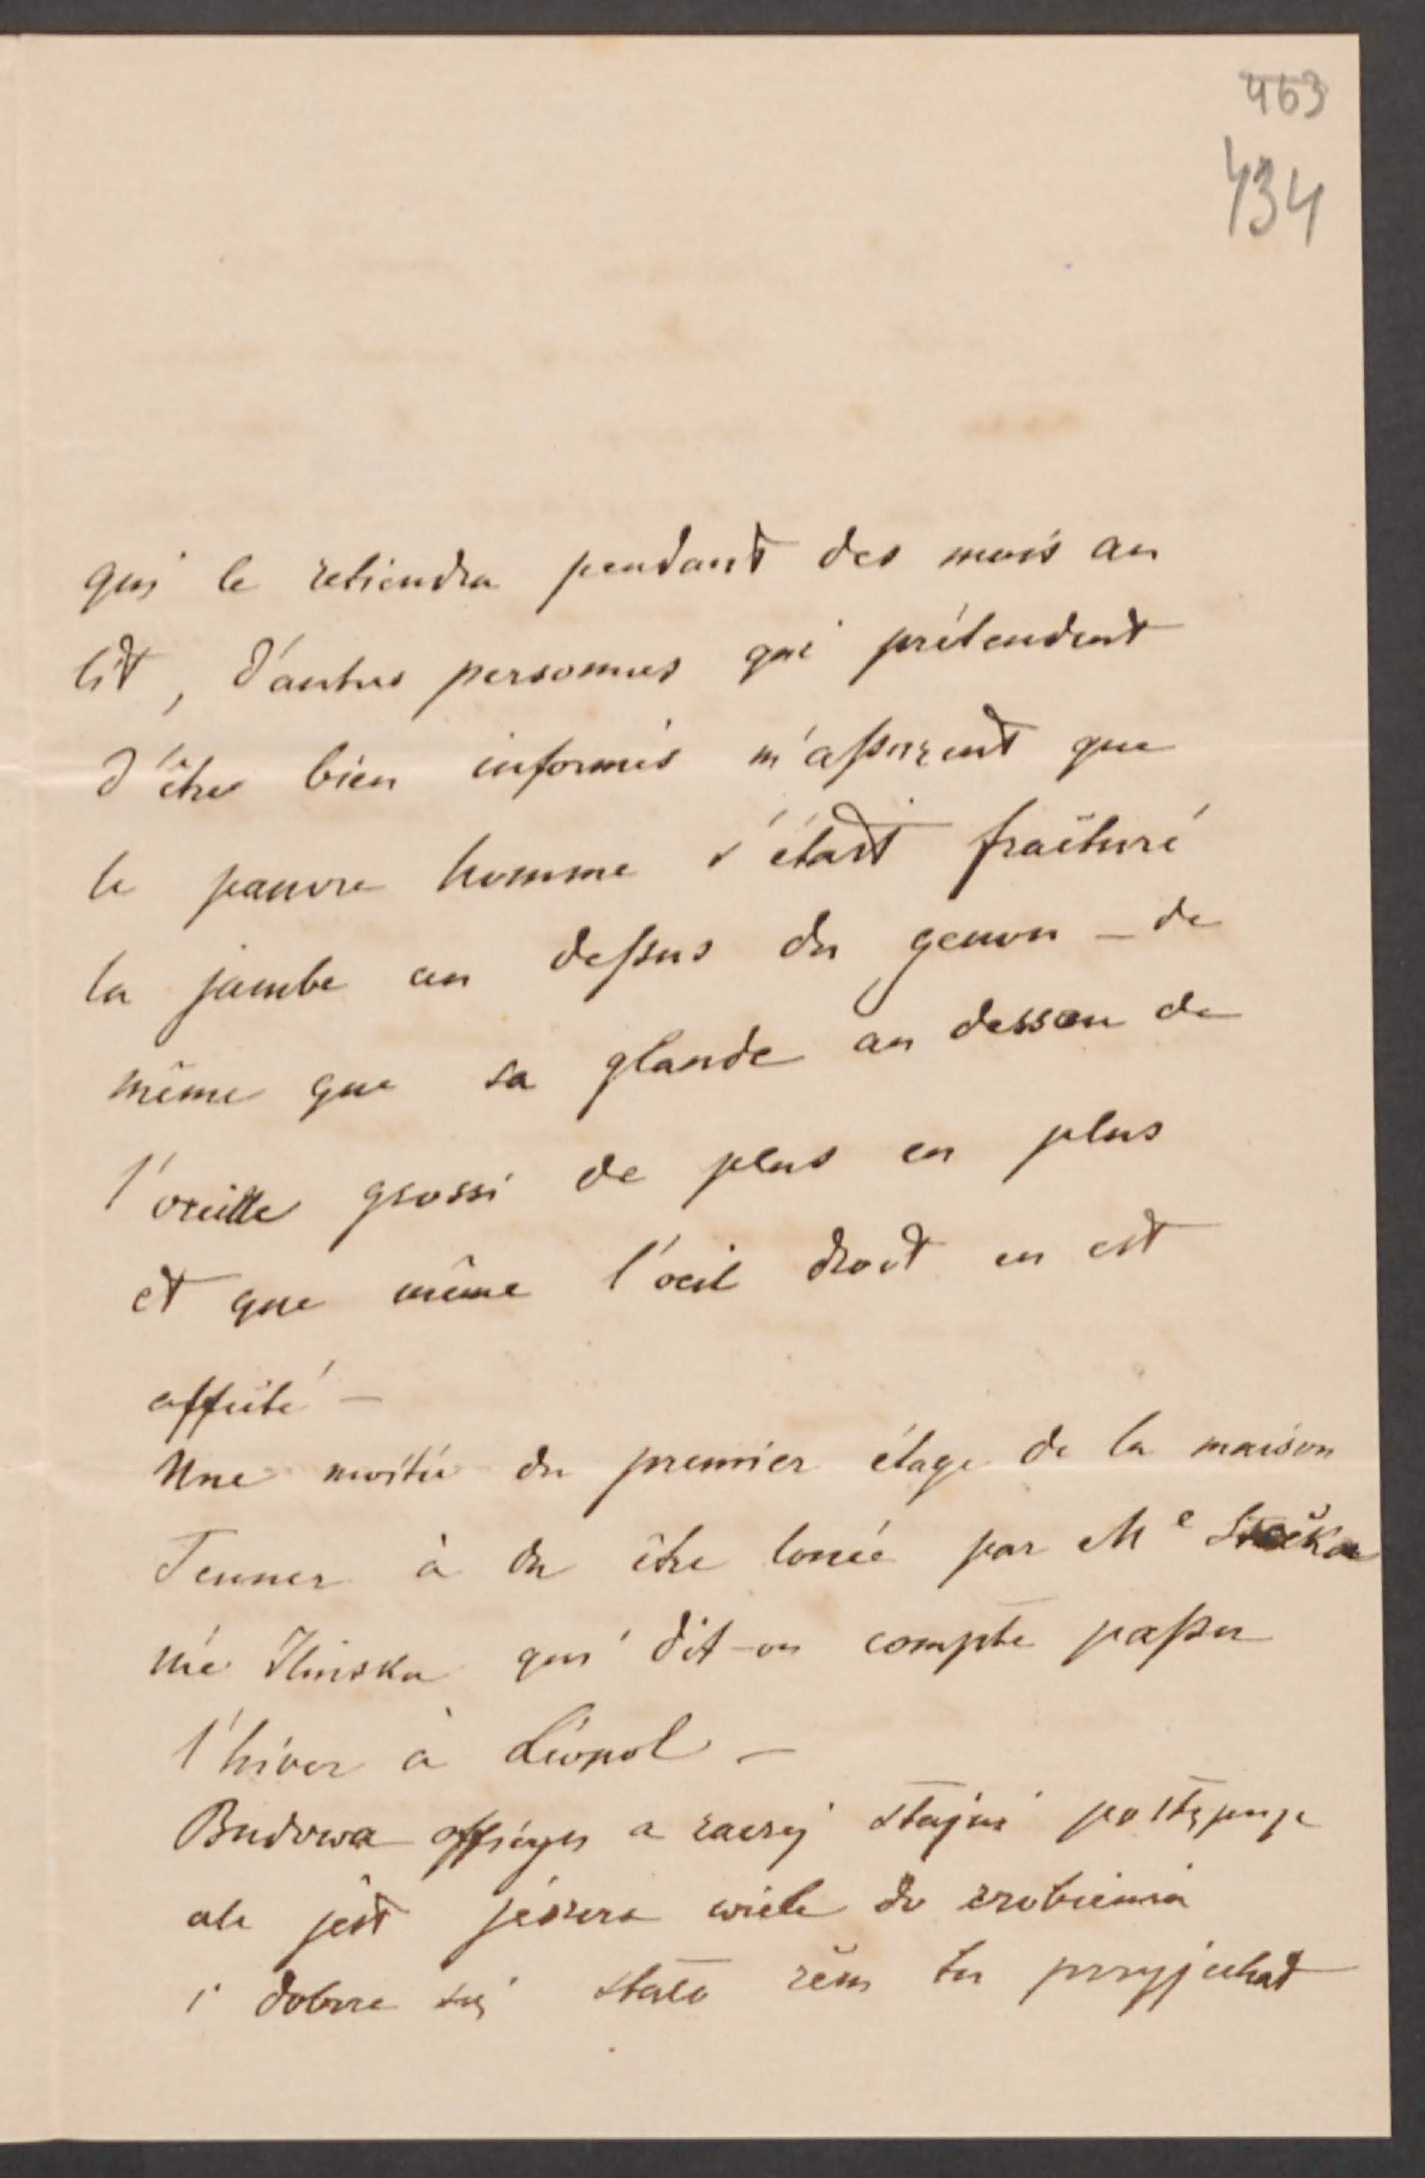 463
434
qui le retiendra pendant des mois au
lit, d'autres personnes qui prétendent
d'être bien informés m'assurent que
le pauvre homme s'était fracturé
la jambe au dessus du genou – de
même que sa glande au dessou de
l'oreille grossi de plus en plus
et que même l'oeil droit en est
affecté –
Une moitié du premier étage de la maison
Tenner à du être louée par Me
née Ilinska qui dit-on compte passer
l'hiver à Léopol –
Budowa officyn a raczej stajni postępuje
ale jest jeszcze wiele do zrobienia
i dobrze się stało żem tu przyjechał